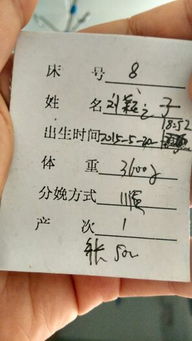 床 号 8
姓 名 刘 之子
18:52
出生时间 2015-5-20
体 重 3600g
分娩方式 顺
产 次 1
50u